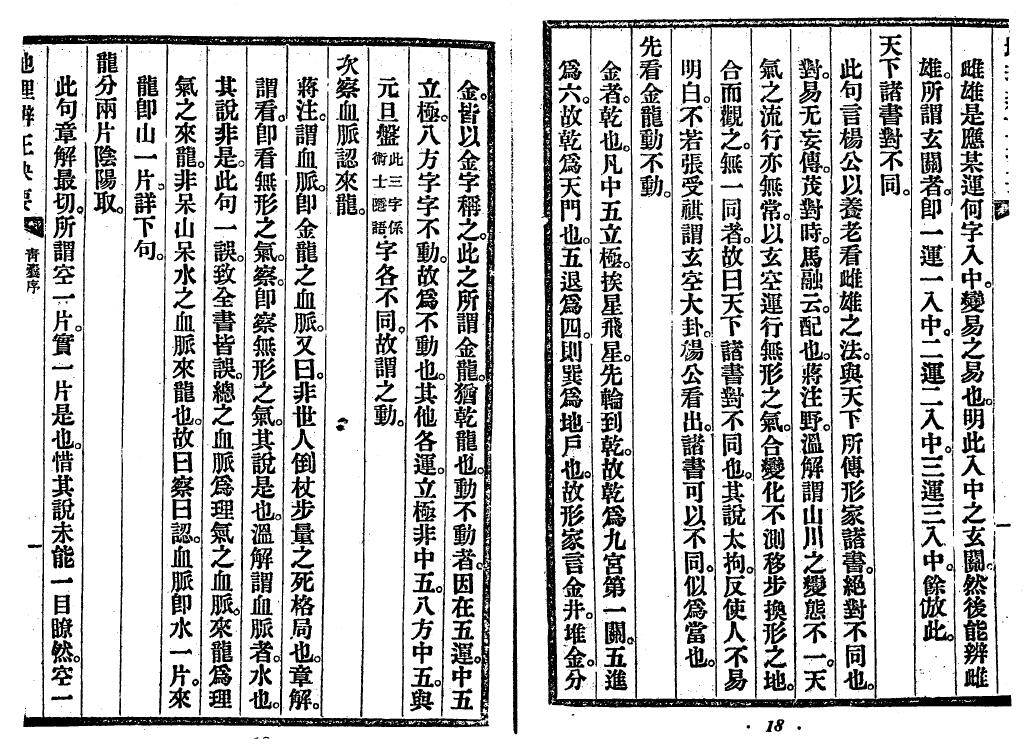 雌雄是應某運何字入中。變易之易也。明此入中之玄關。然後能辨雌
雄。所謂玄關者。卽一運一入中。二運二入中。三運三入中。餘倣此。
天下諸書對不同。
此句言楊公以養老看雌雄之法。與天下所傳形家諸書。絕對不同也。
對。易无妄傳。茂對時。馬融云。配也。蔣注野。溫解謂山川之變態不一。天
氣之流行亦無常。以玄空運行無形之氣。合變化不測移步換形之地。
合而觀之。無一同者。故曰天下諸書對不同也。其說太拘。反使人不易
明白。不若張受祺謂玄空大卦。楊公看出。諸書可以不同。似爲當也。
先看金龍動不動。
金者。乾也。凡中五立極。挨星飛星。先輪到乾。故乾爲九宮第一關。五進
爲六。故乾爲天門也。五退爲四。則巽爲地戶也。故形家言金井。堆金。分
金。皆以金字稱之。此之所謂金龍。猶乾龍也。動不動者。因在五運。中五
立極。八方字字不動。故爲不動也。其他各運。立極非中五。八方中五。與
元旦盤此三字係術士隱語字各不同。故謂之動。
次察血脈認來龍。
蔣注謂血脈。卽金龍之血脈。又曰。非世人倒杖步量之死格局也。章解。
謂看。卽看無形之氣。察。卽察無形之氣。其說是也。溫解謂血脈者。水也。
其說非是。此句一誤。致全書皆誤。總之血脈爲理氣之血脈。來龍爲理
氣之來龍。非呆山呆水之血脈來龍也。故曰察曰認。血脈卽水一片。來
龍卽山一片。詳下句。
龍分兩片陰陽取。
此句章解最切。所謂空一片。實一片是也。惜其說未能一目瞭然。空一
地理辨正抉要
青囊序
一
18